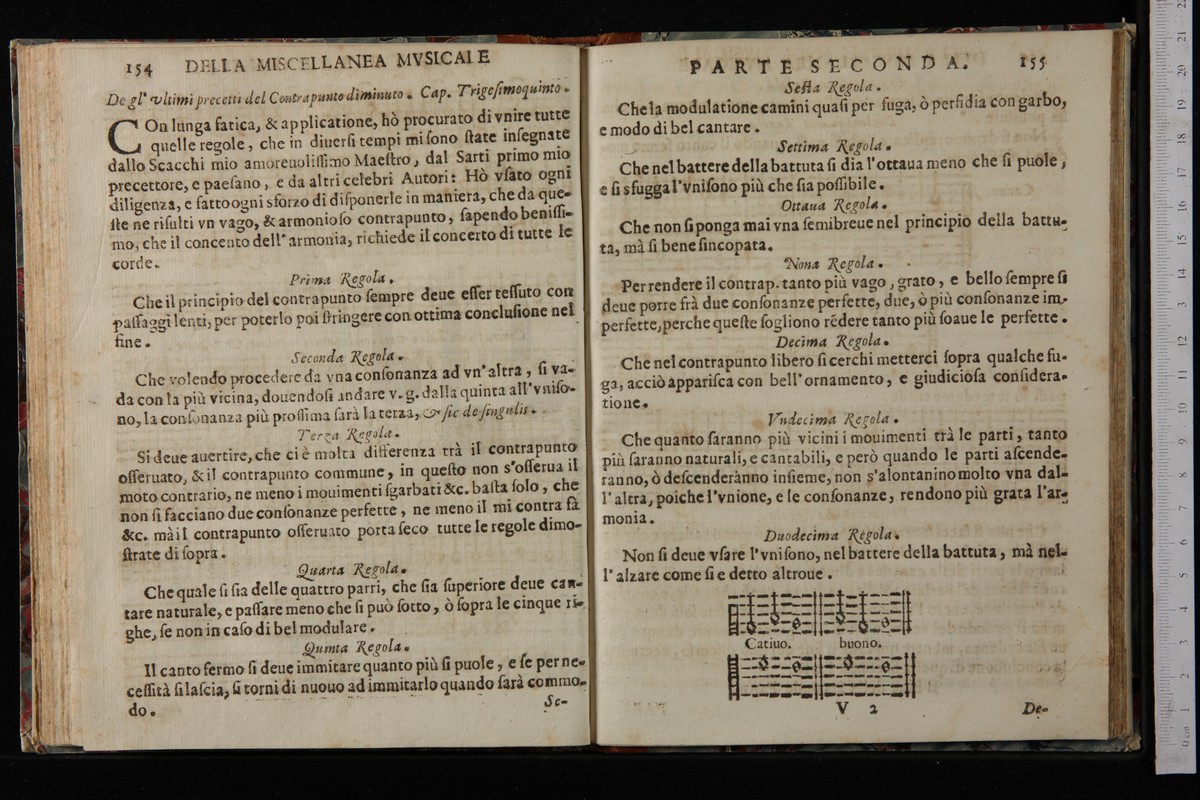 154 DELLA MISCELLANEA MVSICALE
De gl' vltimi precetti del Contrapunto diminuto. Cap. Trigesimoquinto.
COn lunga fatica, & applicatione, hò procurato di vnire tutte
quelle regole, che in diuersi tempi mi sono state insegnate
dallo Scacchi mio amoreuolissimo Maestro, dal Sarti primo mio
precettore, e paesano, e da altri celebri Autori: Hò vsato ogni
diligenza, e fatto ogni sforzo di disponerle in maniera, che da que-
ste ne risulti vn vago, & armonioso contrapunto, sapendo benissi-
mo, che il concento dell'armonia, richiede il concerto di tutte le
corde.
Prima Regola.
Che il principio del contrapunto sempre deue esser tessuto con
passaggi lenti, per poterlo poi stringere con ottima conclusione nel
fine.
Seconda Regola.
Che volendo procedere da vna consonanza ad vn'altra, si va-
da con la più vicina, douendosi andare v.g. dalla quinta all'vniso-
no, la consonanza più prossima sarà la terza, & sic de singulis.
Terza Regola.
Si deue auertire, che ci è molta differenza trà il contrapunto
osseruato, & il contrapunto commune, in questo non s'osserua il
moto contrario, ne meno i mouimenti sgarbati &c. basta solo, che
non si facciano due consonanze perfette, ne meno il mi contra fà
&c. mà il contrapunto osseruato porta seco tutte le regole dimo-
strate di sopra.
Quarta Regola.
Che quale si sia delle quattro parri, che sia superiore deue can-
tare naturale, e passare meno che si può sotto, ò sopra le cinque ri-
ghe, se non in caso di bel modulare.
Quinta Regola.
Il canto fermo si deue immitare quanto più si puole, e se per ne-
cessità si lascia, si torni di nuouo ad immitarlo quando sarà commo-
do.
Se-
PARTE SECONDA. 155
Sesta Regola.
Che la modulatione camini quasi per fuga, ò perfidia con garbo,
e modo di bel cantare.
Settima Regola.
Che nel battere della battuta si dia l'ottaua meno che si puole,
e si sfugga l'vnisono più che sia possibile.
Ottaua Regola.
Che non si ponga mai vna semibreue nel principio della battu-
ta, mà si bene sincopata.
Nona Regola.
Per rendere il contrap. tanto più vago, grato, e bello sempre si
deue porre frà due consonanze perfette, due, ò più consonanze im-
perfette, perche queste sogliono rēdere tanto più soaue le perfette.
Decima Regola.
Che nel contrapunto libero si cerchi metterci sopra qualche fu-
ga, acciò apparisca con bell'ornamento, e giudiciosa considera-
tione.
Vndecima Regola.
Che quanto saranno più vicini i mouimenti trà le parti, tanto
più saranno naturali, e cantabili, e però quando le parti ascende-
ranno, ò descenderànno insieme, non s'alontanino molto vna dal-
l'altra, poiche l'vnione, e le consonanze, rendono più grata l'ar-
monia.
Duodecima Regola.
Non si deue vsare l'vnisono, nel battere della battuta, mà nel-
l'alzare come si e detto altroue.
Catiuo. buono.
V 2
De-